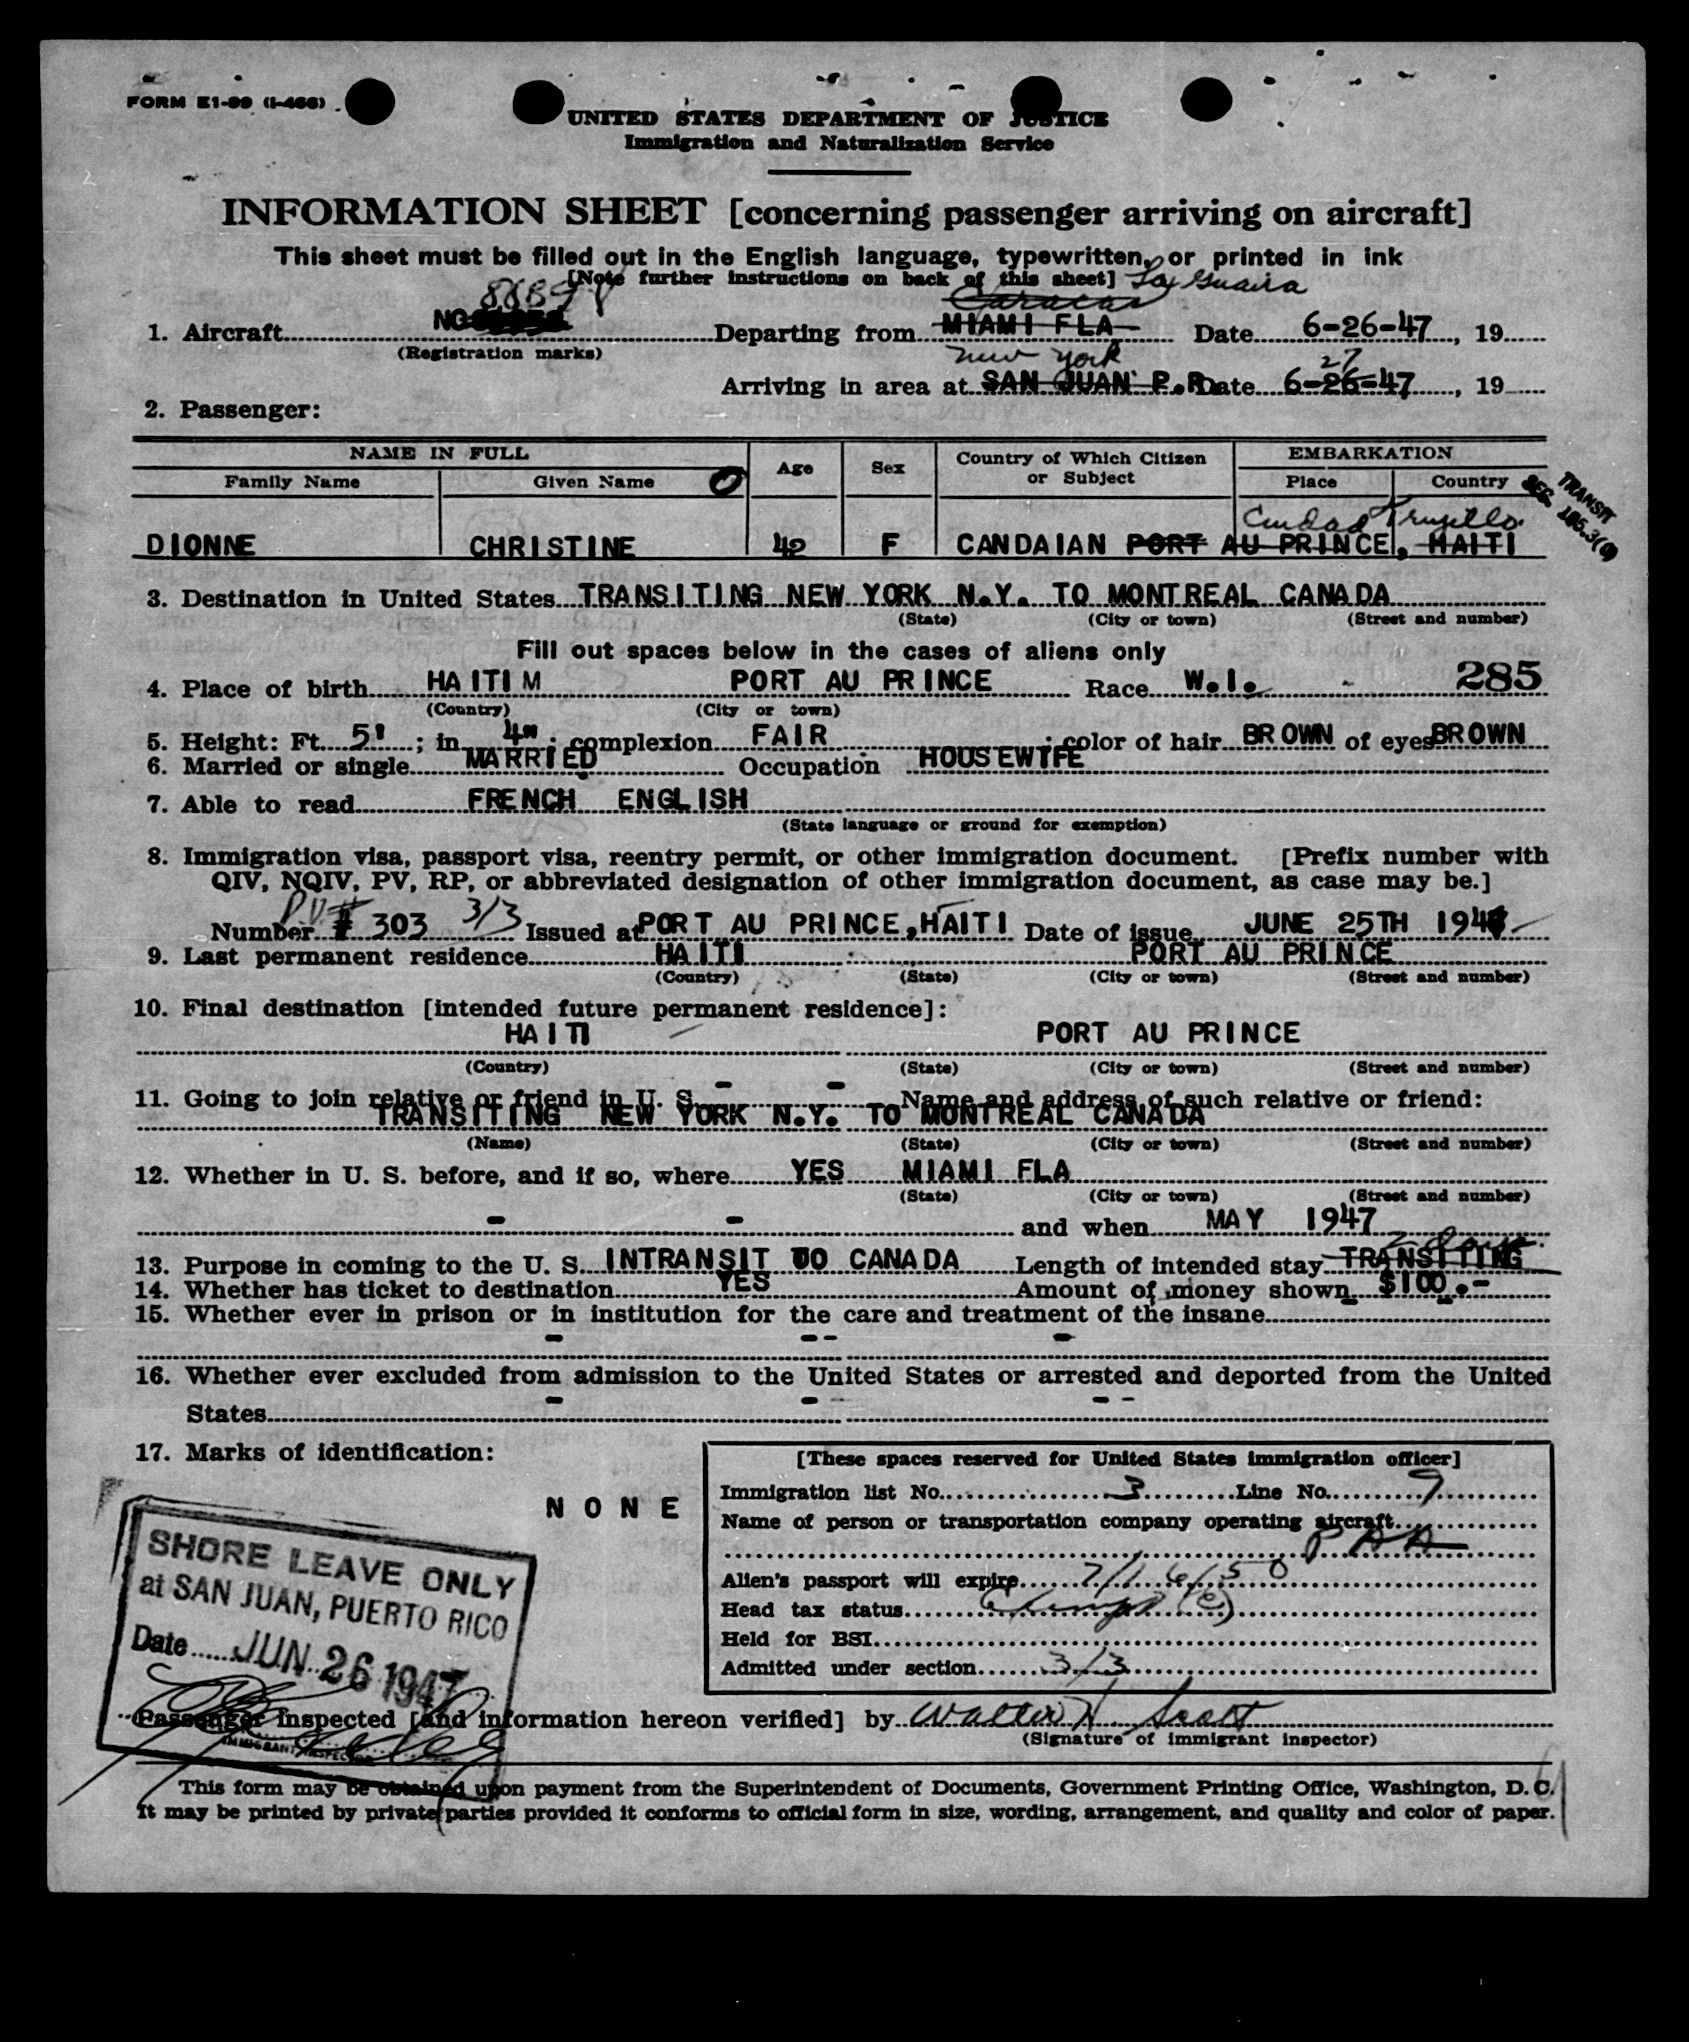 FORM I-99 (I-466)
UNITED STATES DEPARTMENT OF JUSTICE
Immigration and Naturalization Service
INFORMATION SHEET [concerning passenger arriving on aircraft]
This sheet must be filled out in the English language, typewritten, or printed in ink
[Note further instructions on back of this sheet] La Guaira
Caracas
1. Aircraft NC Departing from MIAMI FLA Date 6-26-47, 19
(Registration marks) New York 27
Arriving in area at SAN JUAN P.R. Date 6-26-47, 19
2. Passenger:
NAME IN FULL Age Sex Country of Which Citizen or Subject EMBARKATION
Family Name Given Name Place Country
TRANSIT
SEC.
Ciudad Trujillo
DIONNE CHRISTINE 42 F CANDAIAN PORT AU PRINCE, HAITI
3. Destination in United States TRANSITING NEW YORK N.Y. TO MONTREAL CANADA
(State) (City or town) (Street and number)
Fill out spaces below in the cases of aliens only
4. Place of birth HAITI M PORT AU PRINCE Race W.I. 285
(Country) (City or town)
5. Height: Ft. 5'; in. 4"; complexion FAIR; color of hair BROWN of eyes BROWN
6. Married or single MARRIED Occupation HOUSEWIFE
7. Able to read FRENCH ENGLISH
(State language or ground for exemption)
8. Immigration visa, passport visa, reentry permit, or other immigration document. [Prefix number with
QIV, NQIV, PV, RP, or abbreviated designation of other immigration document, as case may be.]
P.V. # 3/3
Number # 303 Issued at PORT AU PRINCE, HAITI Date of issue JUNE 25TH 194
9. Last permanent residence HAITI PORT AU PRINCE
(Country) (State) (City or town) (Street and number)
10. Final destination [intended future permanent residence]:
HAITI PORT AU PRINCE
(Country) (State) (City or town) (Street and number)
11. Going to join relative or friend in U. S. - - Name and address of such relative or friend:
TRANSITING NEW YORK N.Y. TO MONTREAL CANADA
(Name) (State) (City or town) (Street and number)
12. Whether in U. S. before, and if so, where YES MIAMI FLA
(State) (City or town) (Street and number)
- - and when MAY 1947
13. Purpose in coming to the U. S. INTRANSIT TO CANADA Length of intended stay TRANSITING
14. Whether has ticket to destination YES Amount of money shown $100.-
15. Whether ever in prison or in institution for the care and treatment of the insane
- -- -
16. Whether ever excluded from admission to the United States or arrested and deported from the United
States - - --
17. Marks of identification:
NONE
[These spaces reserved for United States immigration officer]
Immigration list No. 3 Line No. 9
Name of person or transportation company operating aircraft
PAA
Alien's passport will expire 7/16/50
Head tax status Exempt (e)
Held for BSI
Admitted under section 3/3
SHORE LEAVE ONLY
at SAN JUAN, PUERTO RICO
Date JUN 26 1947
IMMIGRANT INSPECTOR
Passenger inspected [and information hereon verified] by Walter H Scott
(Signature of immigrant inspector)
This form may be obtained upon payment from the Superintendent of Documents, Government Printing Office, Washington, D. C.
It may be printed by private parties provided it conforms to official form in size, wording, arrangement, and quality and color of paper.